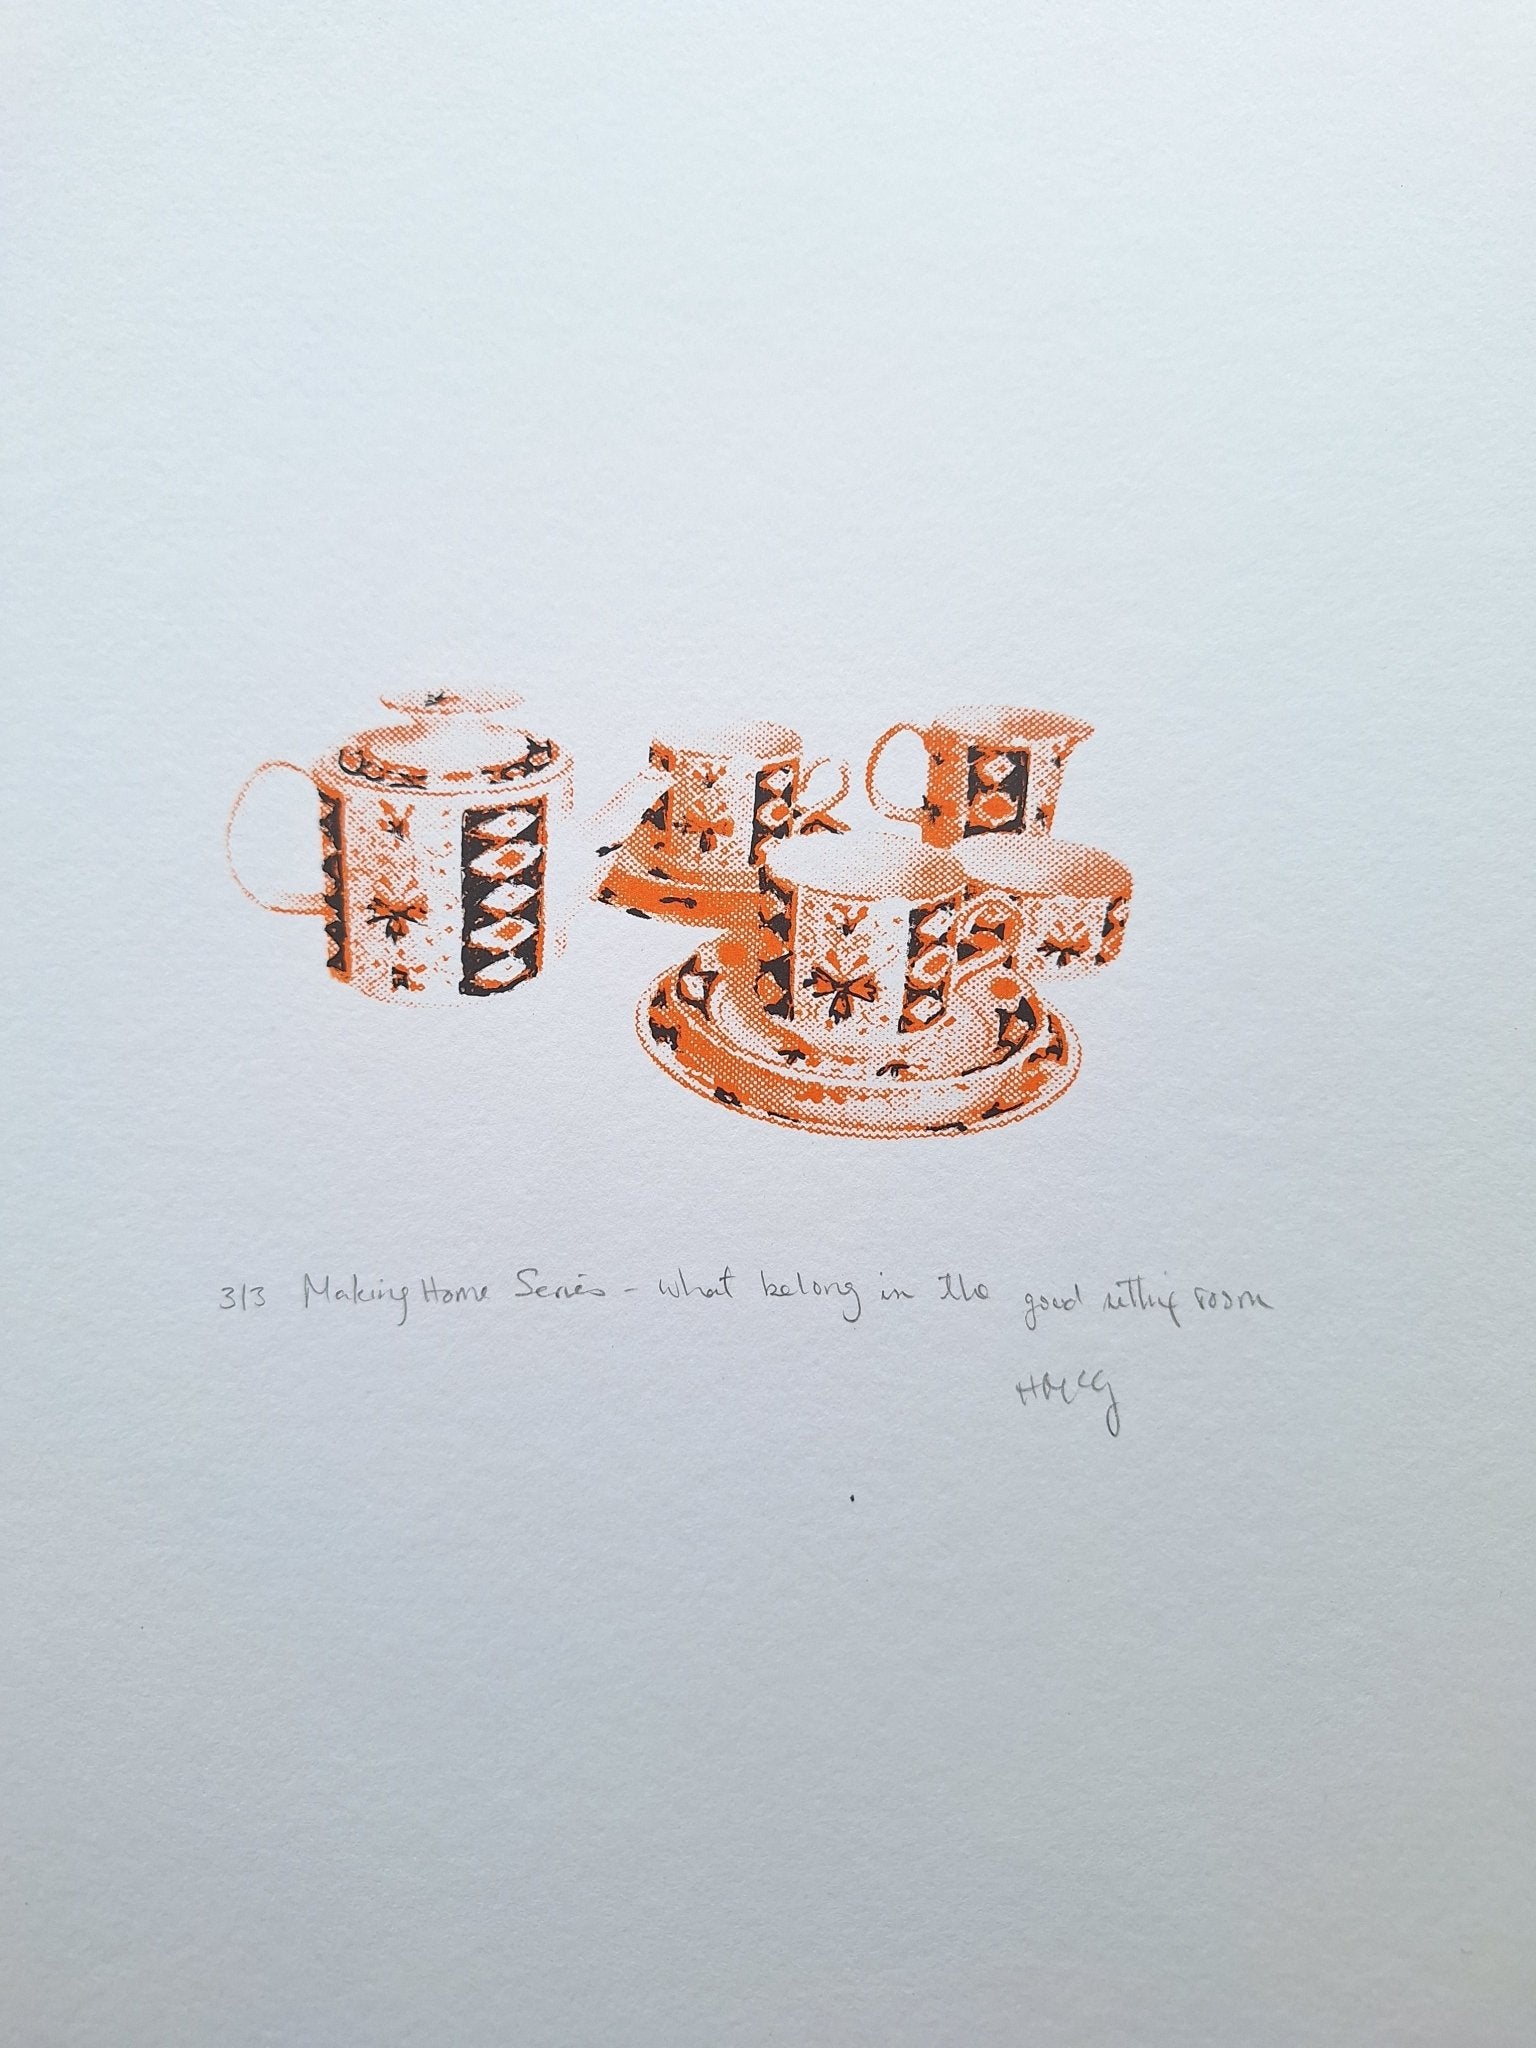 3/3 Making Home Series - what belong in the good sitting room
HMcG